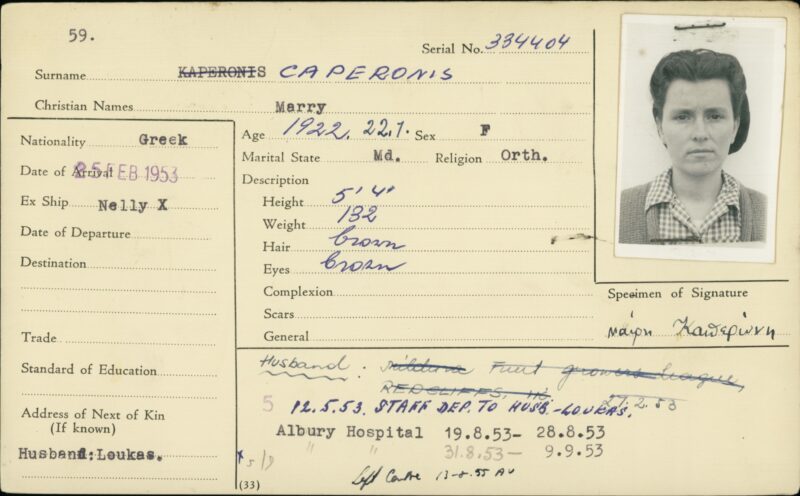 59.
Serial No. 334404
Surname KAPERONIS CAPERONIS
Christian Names Marry
Nationality Greek
Date of Arrival 25 FEB 1953
Ex Ship Nelly X
Date of Departure
Destination
Trade
Standard of Education
Address of Next of Kin
(If known)
Husband:Loukas.
Age 1922. 22.7. Sex F
Marital State Md. Religion Orth.
Description
Height 5' 4"
Weight 132
Hair brown
Eyes brown
Complexion
Scars
General
Specimen of Signature
μαίρη Καπερώνη
Husband: Mildura Fruit growers league,
REDCLIFFS, 27.2.53
5 12.5.53. STAFF DEP. TO HUSB.-LOUKAS.
Albury Hospital 19.8.53- 28.8.53
" " 31.8.53- 9.9.53
Left Centre
(33)